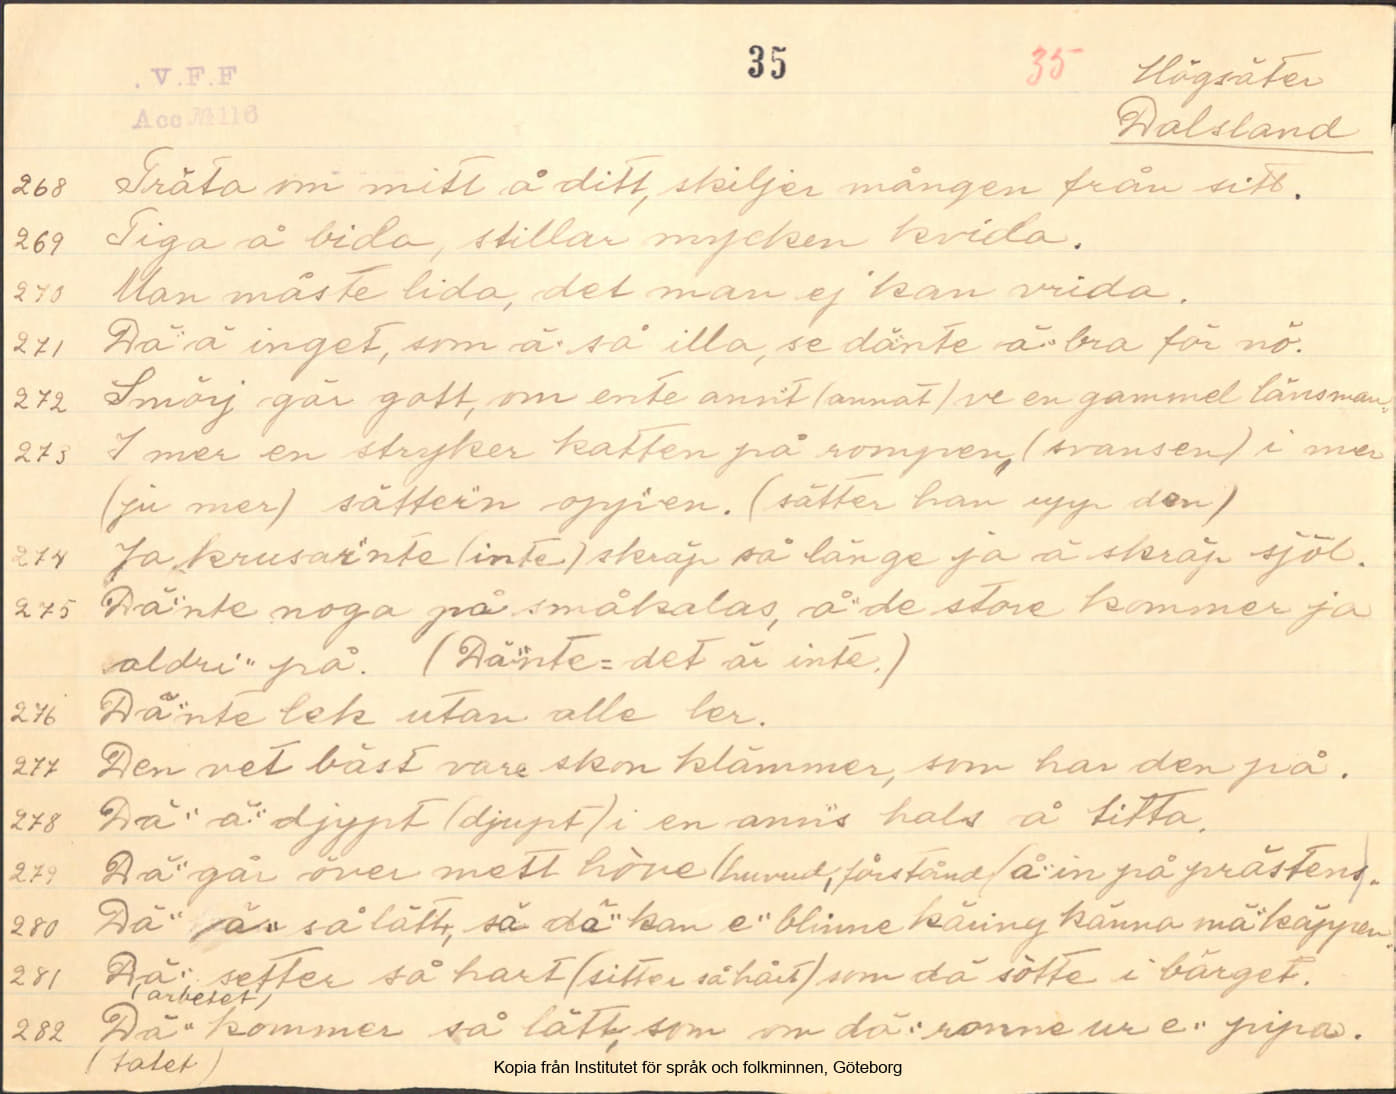 . V.F.F
Acc № 116
35
35
Högsäter
Dalsland
268 Träta om mitt å ditt, skiljer mången från sitt.
269 Tiga å bida, stillar mycken kvida.
270 Man måste lida, det man ej kan vrida.
271 Dä ä inget, som ä så illa, se dänte ä bra för nö.
272 Smörj gör gott, om ente annt (annat) ve en gammel länsman.
273 I mer en stryker katten på rompen, (svansen) i mer
(ju mer) sätter'n opp'en. (sätter han upp den)
274 Ja krusar'nte (inte) skräp så länge ja ä skräp sjöl.
275 Dä'nte noga på småkalas, å de store kommer ja
aldri" på. (Dä'nte = det är inte.)
276 Dä'nte lek utan alle ler.
277 Den vet bäst vare skon klämmer, som har den på.
278 Dä" ä" djypt (djupt) i en anns hals å titta.
279 Dä" går över mett höve (huvud, förstånd) å in på prästens.
280 Dä" ä" så lätt, så dä" kan e" blinne käring känna mä käppen.
281 Dä" setter så hart (sitter så hårt) som dä sötte i bärget.
(arbetet)
282 Dä" kommer så lätt, som om dä" ronne ur e" pipa.
(talet)
Kopia från Institutet för språk och folkminnen, Göteborg